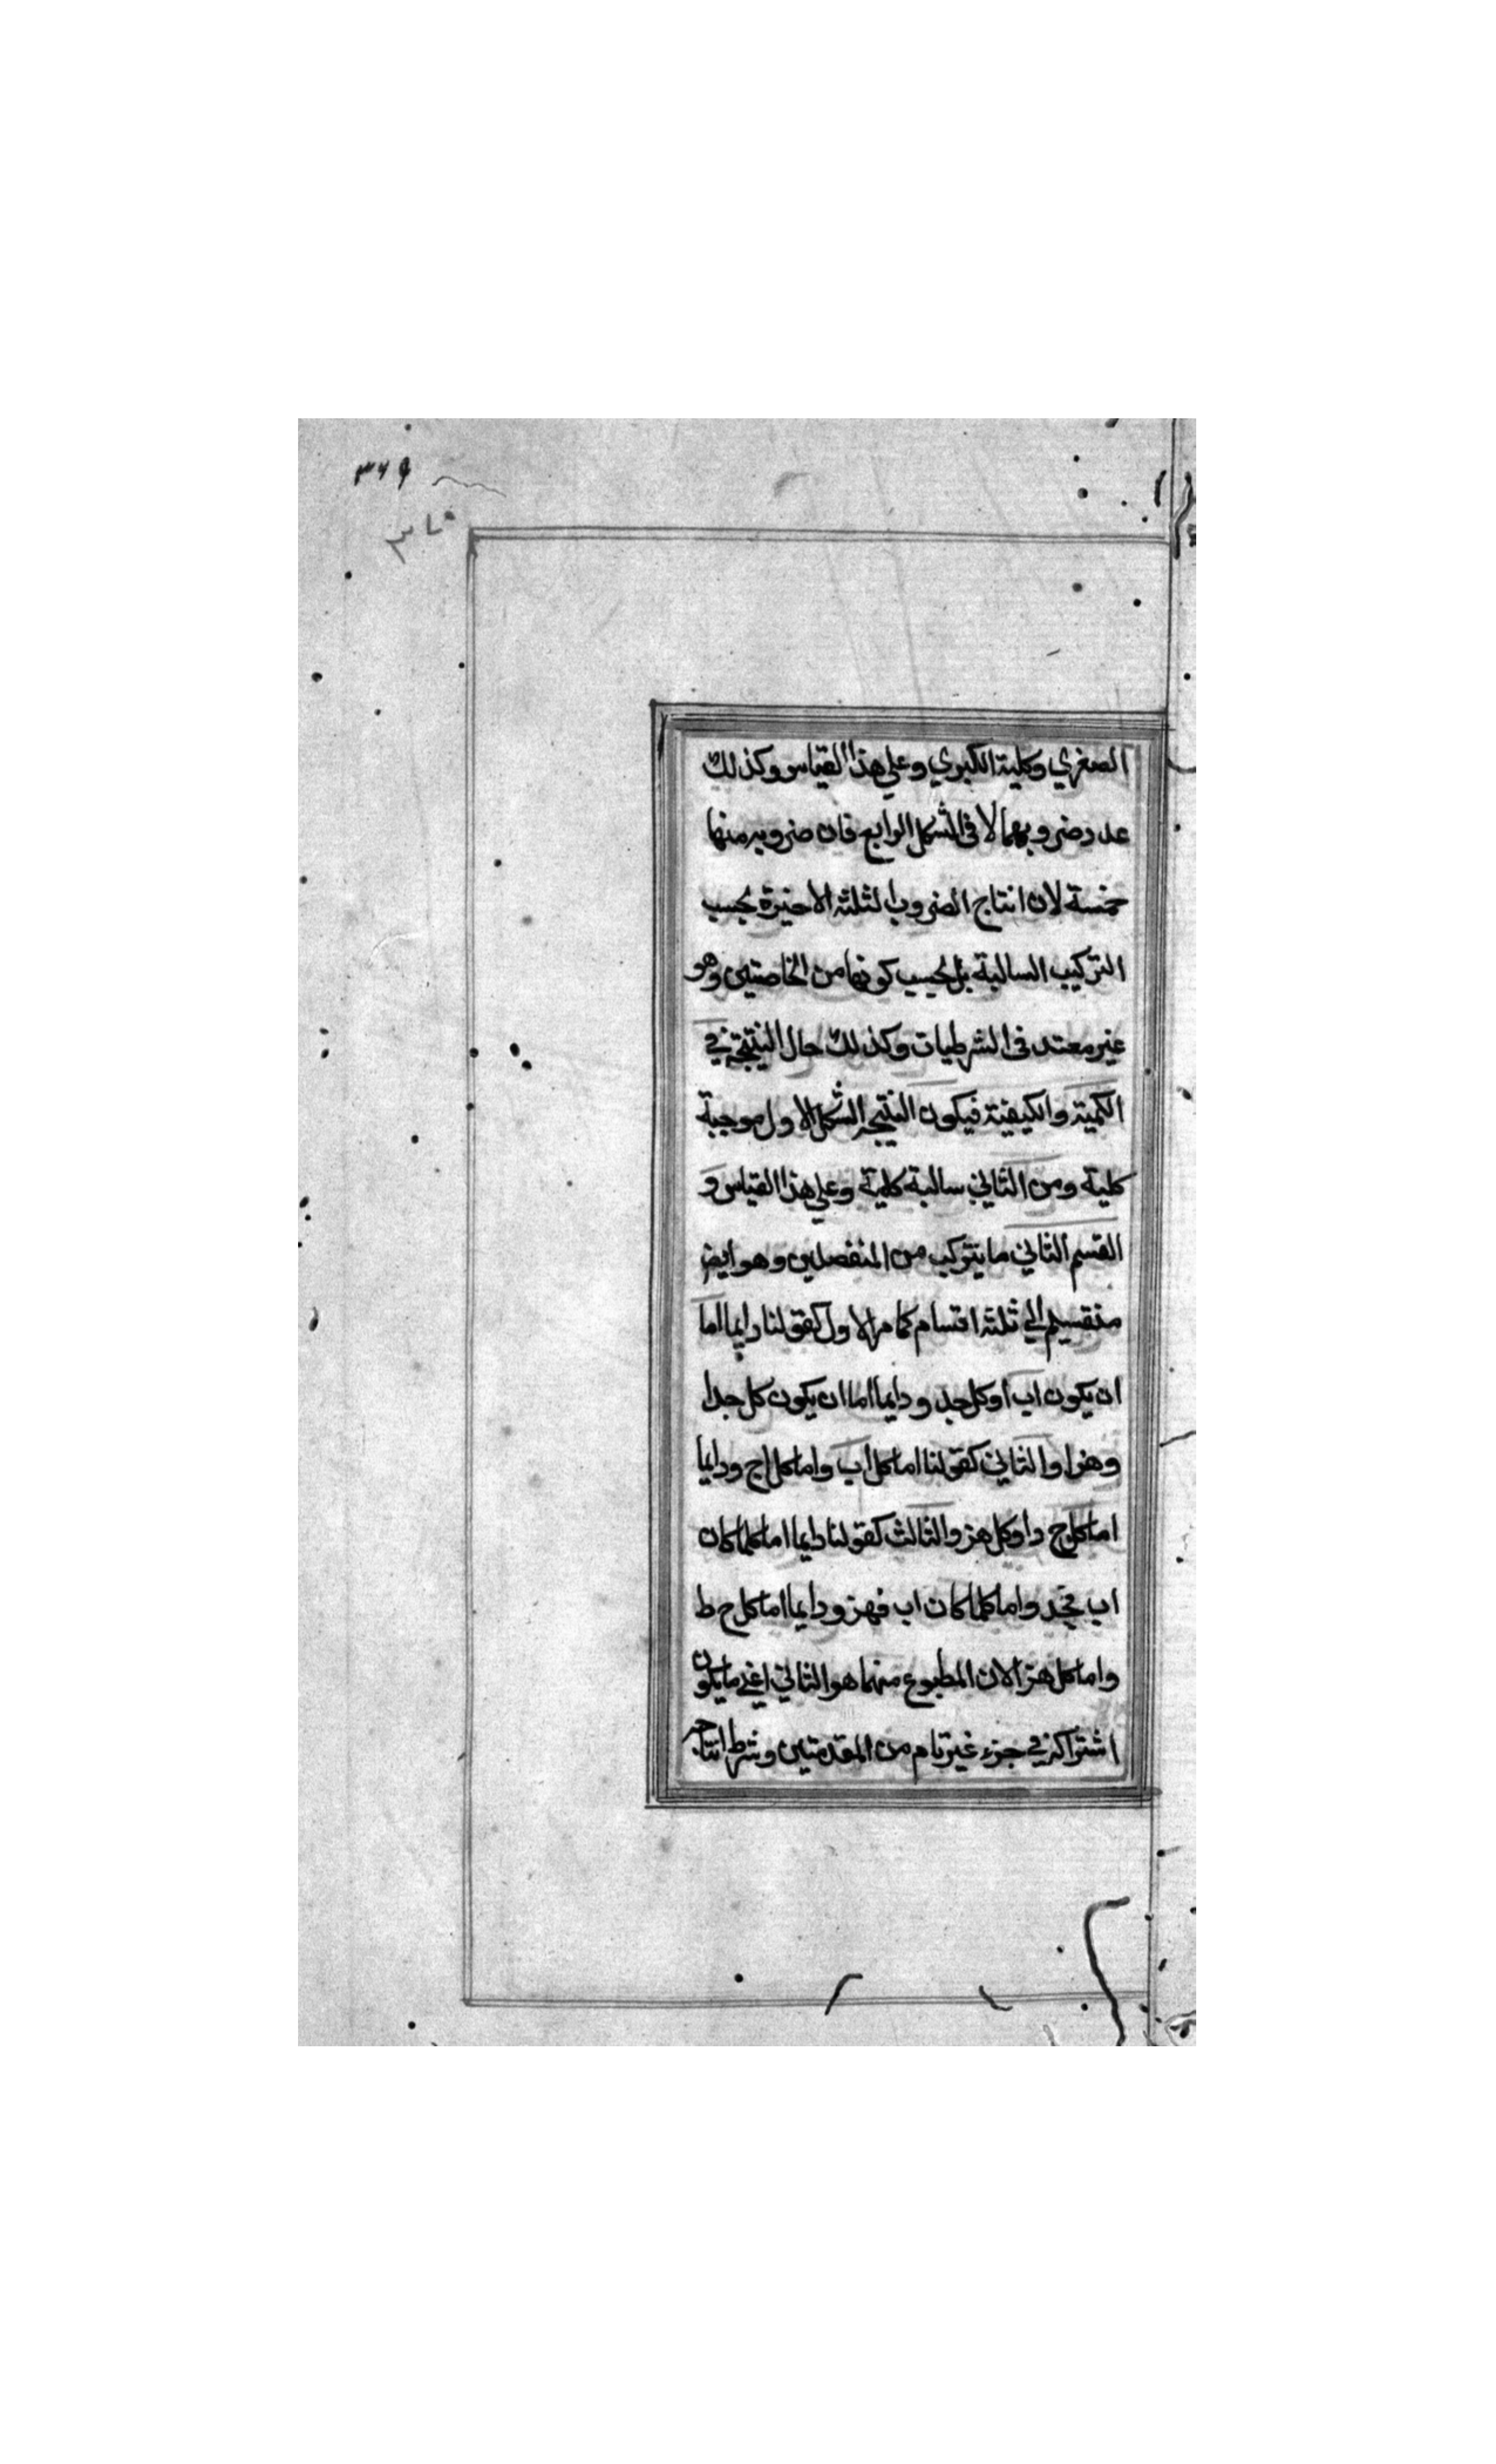 ٣٦٩
الصغري وكلية الكبري وعلي هذا القياس وكذلك
عدد ضروبهما لا في الشكل الرابع فان ضروبه منها
خمسة لان انتاج الضروب الثلثة الاخيرة بحسب
التركيب السالبة بل بحسب كونها من الخاصتين وهو
غير معتد في الشرطيات وكذلك حال النتيجة في
الكمية والكيفية فيكون النتيجة الشكل الاول موجبة
كلية ومن الثاني سالبة كلية وعلي هذا القياس و
القسم الثاني ما يتركب من المنفصلين وهو ايض
منقسم الي ثلثة اقسام كما مر الاول كقولنا دايما اما
ان يكون اب اوكل جد و دايما اما ان يكون كل جدا
وهزا والثاني كقولنا اما كل اب واما كل اج ودايما
اما كل ج د اوكل هز والثالث كقولنا دايما اما كلما كان
اب فجد واما كلما كان اب فهز ودايما اما كل ح ط
واما كل هز الان المطبوع منهما هو الثاني اعني ما يكون
اشتراكه في جزء غير تام من المقدمتين وشرط انتاجه